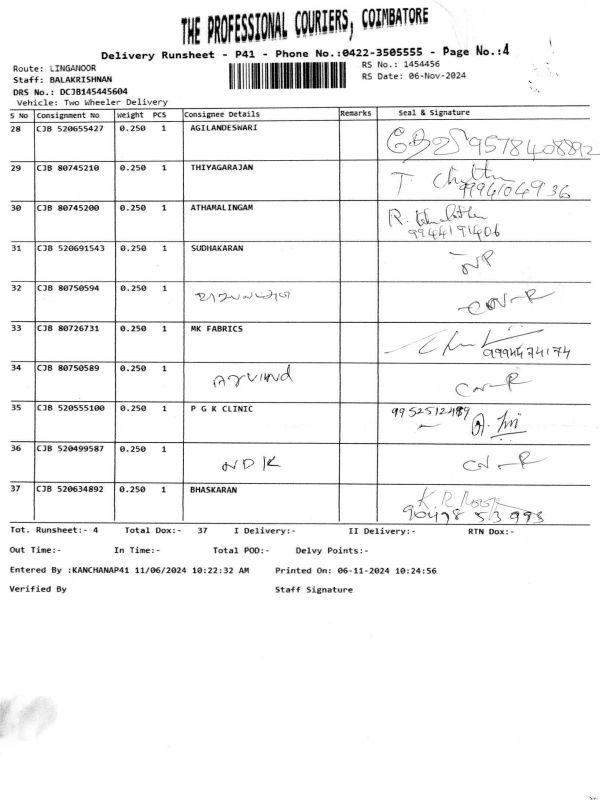 THE PROFESSIONAL COURIERS, COIMBATORE
Delivery Runsheet - P41 - Phone No.:0422-3505555 - Page No.:4
Route: LINGANOOR
RS No.: 1454456
Staff: BALAKRISHNAN
RS Date: 06-Nov-2024
DRS No.: DCJB145445604
Vehicle: Two Wheeler Delivery
S No Consignment No Weight PCS Consignee Details Remarks Seal & Signature
28 CJB 520655427 0.250 1 AGILANDESWARI 9578408892
29 CJB 80745210 0.250 1 THIYAGARAJAN T.
9994104936
30 CJB 80745200 0.250 1 ATHAMALINGAM R.
9944191406
31 CJB 520691543 0.250 1 SUDHAKARAN NP
32 CJB 80750594 0.250 1
33 CJB 80726731 0.250 1 MK FABRICS
9994474174
34 CJB 80750589 0.250 1 Arvind
35 CJB 520555100 0.250 1 P G K CLINIC
36 CJB 520499587 0.250 1 NDK
37 CJB 520634892 0.250 1 BHASKARAN K.R
Tot. Runsheet:- 4 Total Dox:- 37 I Delivery:- II Delivery:- RTN Dox:-
Out Time:- In Time:- Total POD:- Delvy Points:-
Entered By :KANCHANAP41 11/06/2024 10:22:32 AM Printed On: 06-11-2024 10:24:56
Verified By Staff Signature